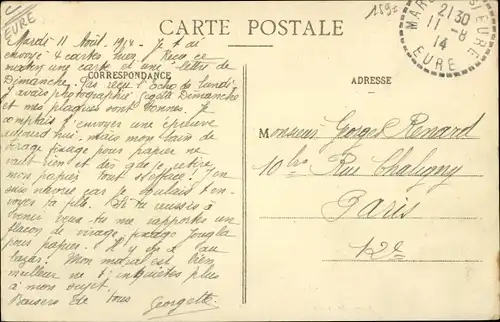 EURE
CARTE POSTALE
CORRESPONDANCE
ADRESSE
21 30
11 - 8
14
EURE
Mardi 11 Août 1914. Je t'ai
envoyé 4 cartes hier. Reçu ce
matin une carte et une lettre de
Dimanche. Pas reçu l'Echo de lundi
J'avais photographié Dimanche
et mes plaques sont bonnes. Je
comptais t'envoyer une épreuve
aujourd'hui. mais mon bain de
virage fixage pour papier ne
vaut rien et dès que je retire
mon papier tout s'efface! J'en
suis navrée car je voulais t'en-
voyer ta fille. Si tu réussis à
venir veux-tu me rapporter un
flacon de virage fixage Jougla
pour papier. Il n'y en a au
bazar! Mon moral est bien
meilleur ne t'inquiètes plus
à mon sujet.
Baisers de tous Georgette
Monsieur Georges Renard
10 bis Rue Chaligny
Paris
12e